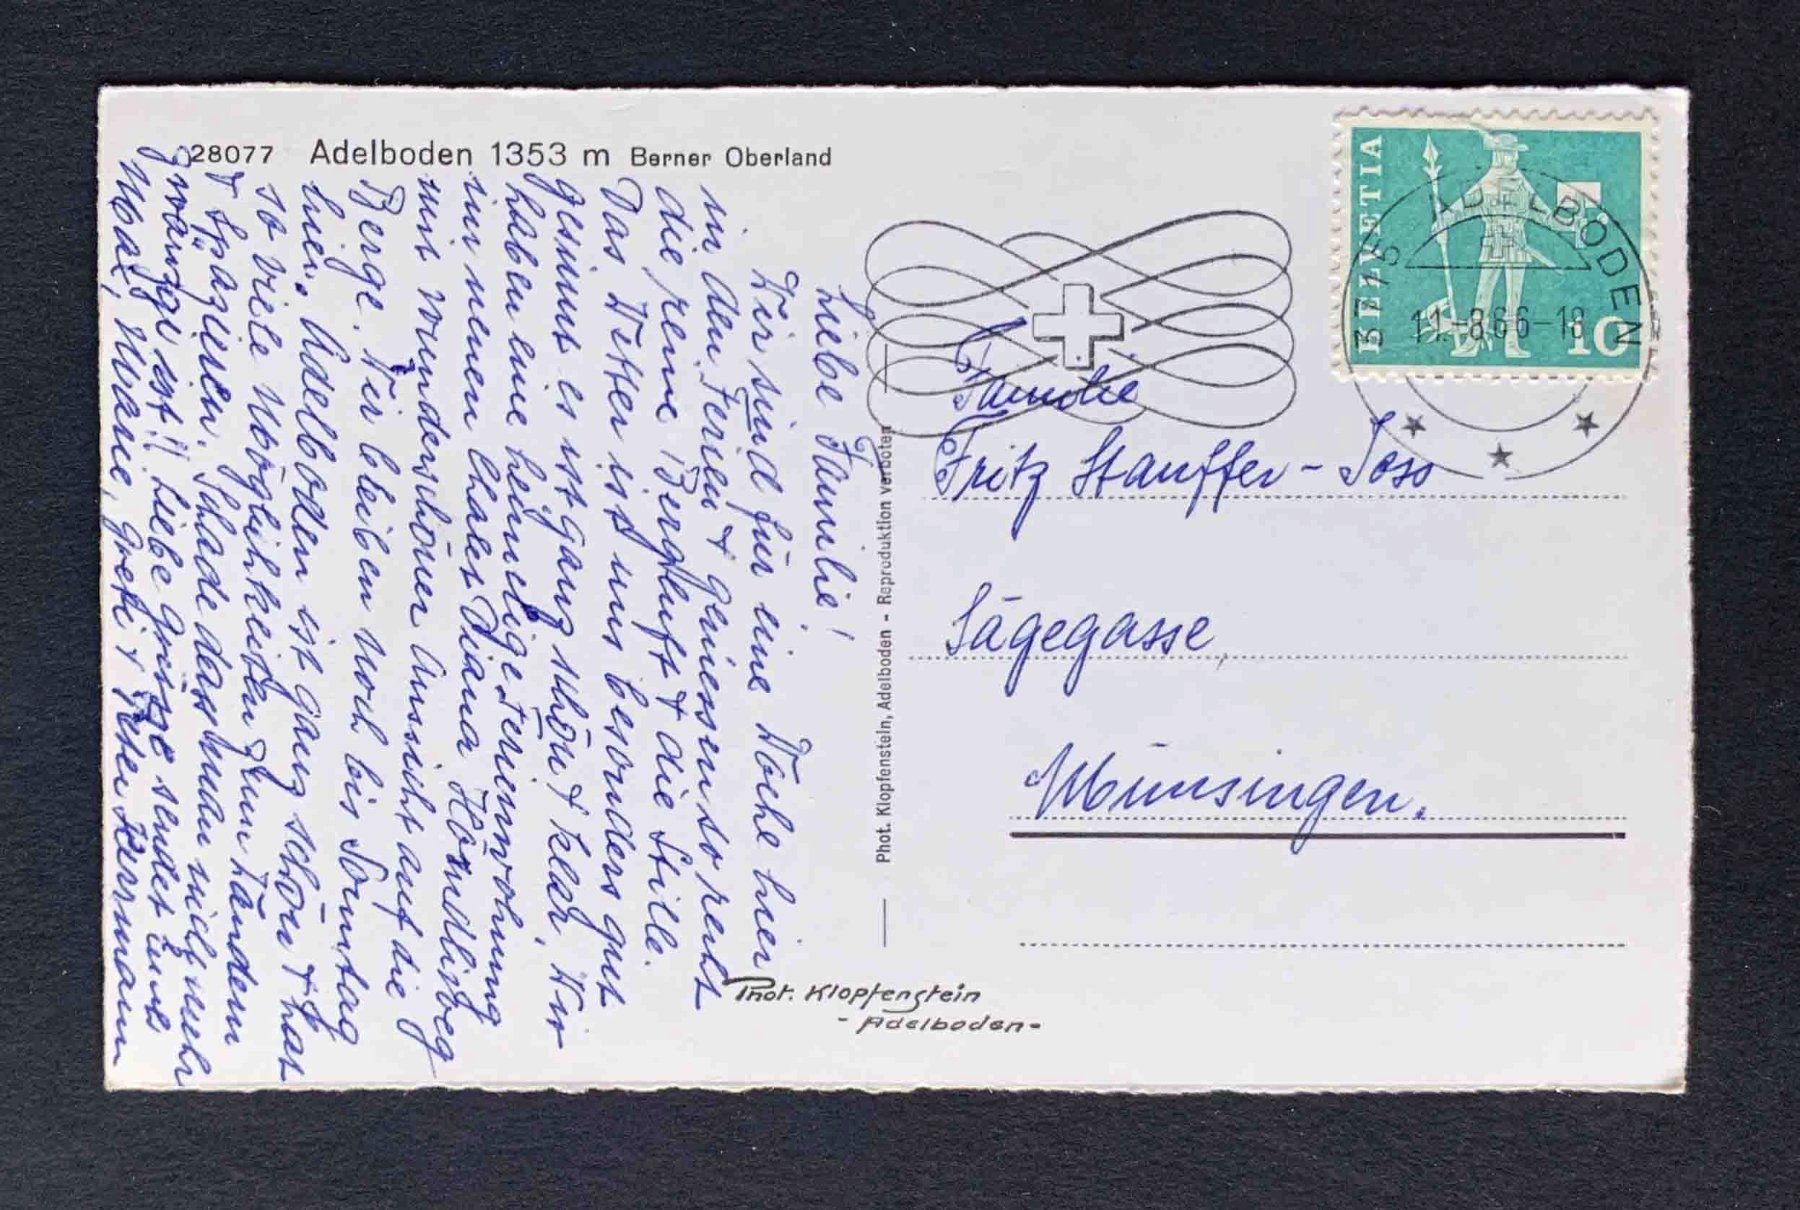 28077 Adelboden 1353 m Berner Oberland
Liebe Familie!
Wir sind für eine Woche hier
in den Ferien & geniessen so recht
die reine Bergluft & die Stille.
Das Wetter ist uns besonders gut
gesinnt es ist ganz schön & klar. Wir
haben eine heimelige Ferienwohnung
im neuen Chalet Diana Hörndliweg
mit wunderschöner Aussicht auf die
Berge. Wir bleiben noch bis Sonntag
hier. Adelboden ist ganz schön & hat
so viele Möglichkeiten zum Wandern
& Spazieren. Schade dass man nicht mehr
zwänzgi ist!! Liebe Grüsse sendet Euch
Max, Marie, Greti & Peter Herrmann
Phot. Klopfenstein, Adelboden - Reproduktion verboten
Phot. Klopfenstein
- Adelboden -
HELVETIA
10
3715 ADELBODEN
11.-8.66-18
Familie
Fritz Stauffer - Joss
Sägegasse,
Münsingen.